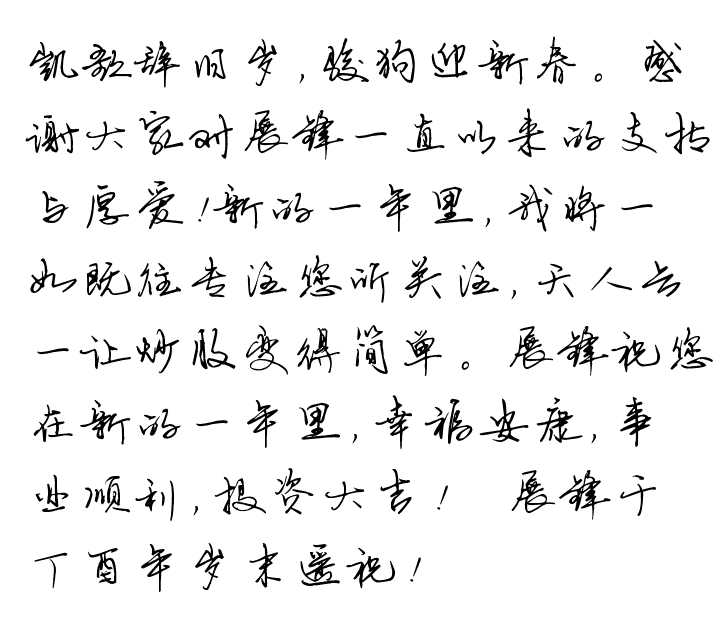 凯歌辞旧岁，骏狗迎新春。感
谢大家对展锋一直以来的支持
与厚爱！新的一年里，我将一
如既往专注您所关注，天人云
一让炒股变得简单。展锋祝您
在新的一年里，幸福安康，事
业顺利，投资大吉！ 展锋于
丁酉年岁末遥祝！